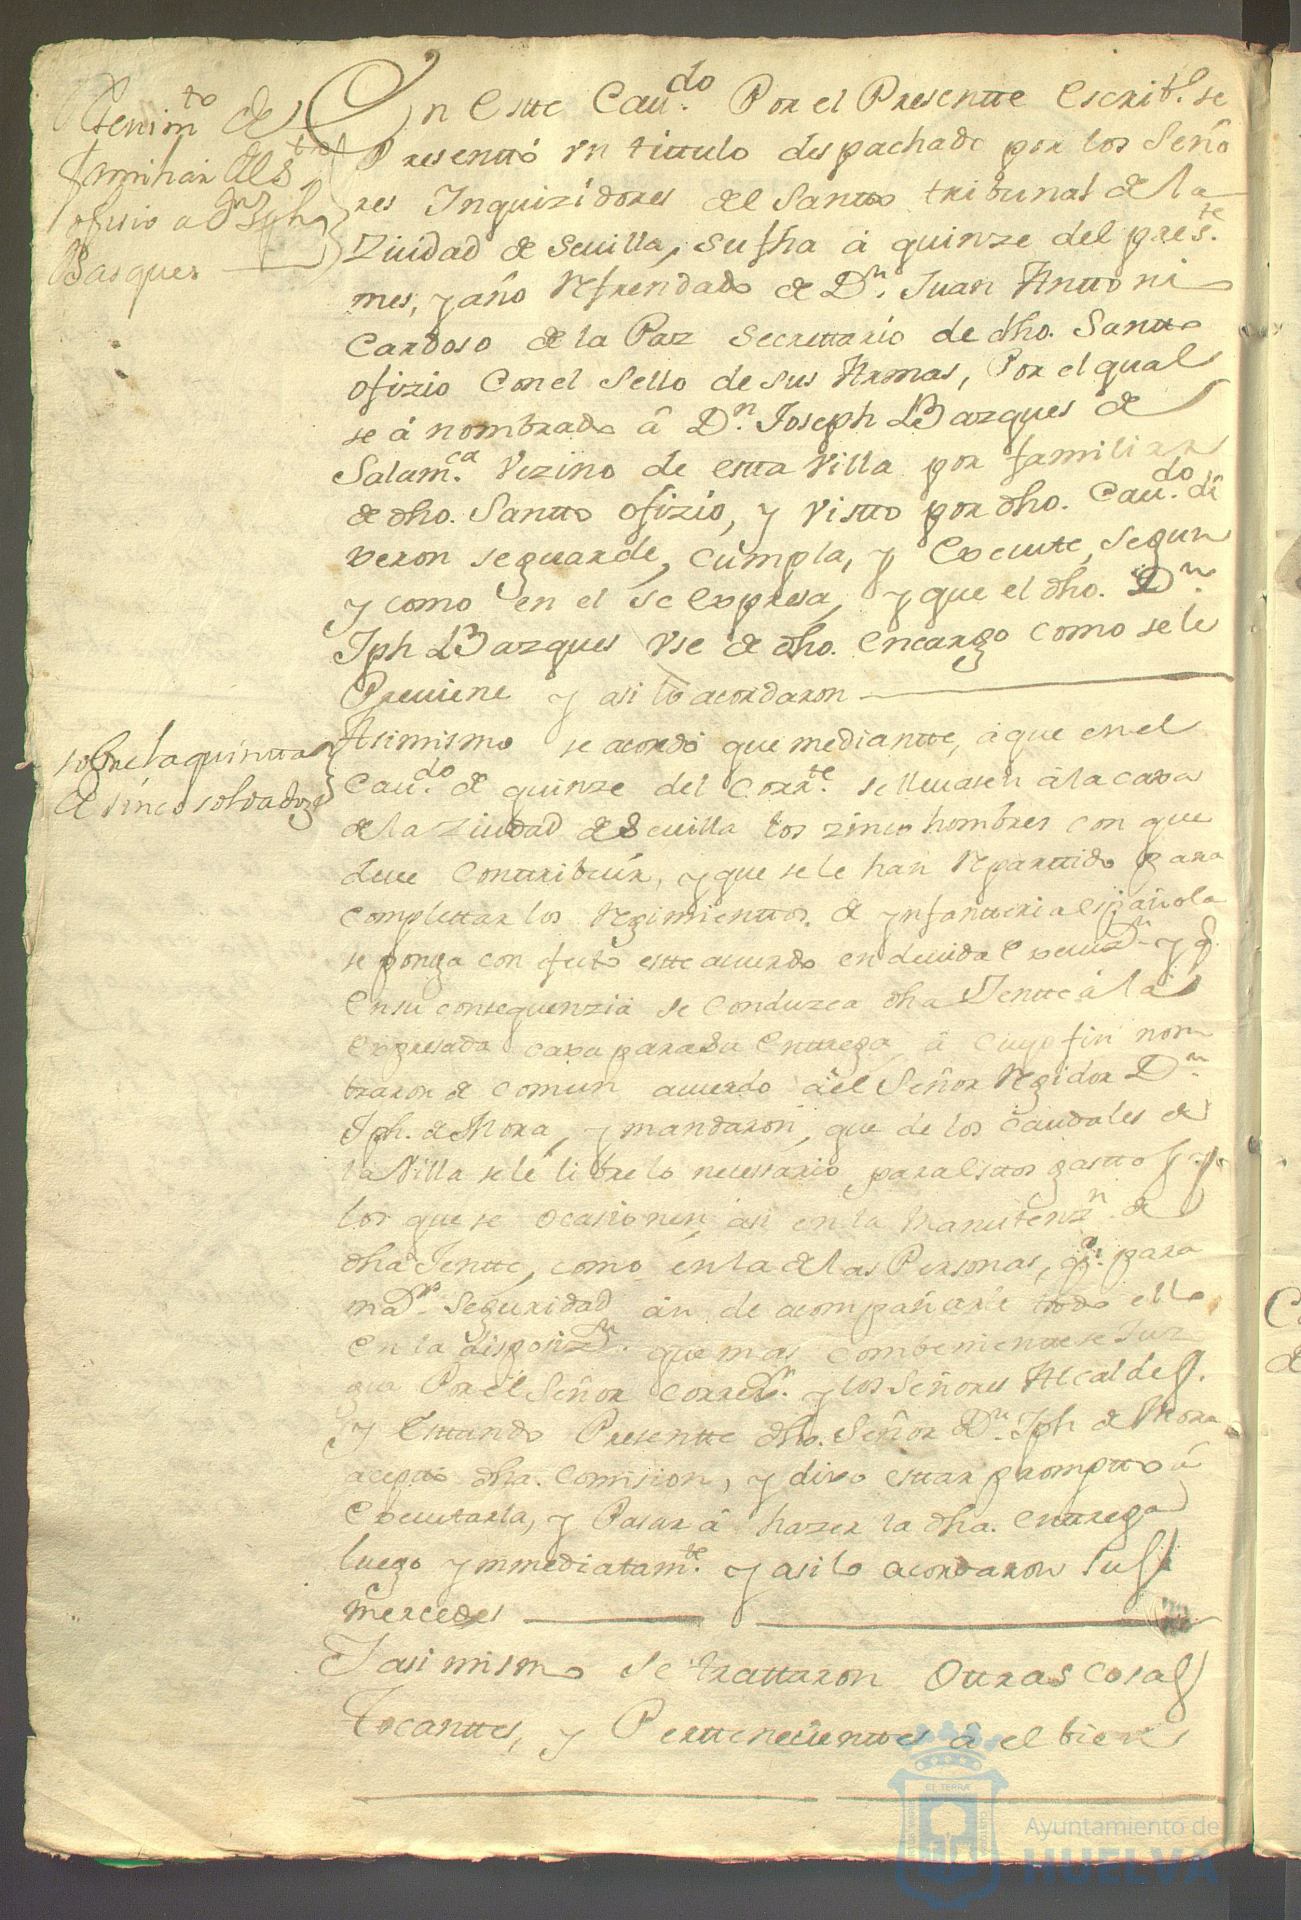 tenim.to de
familiar del s.to
ofisio a Dn Jph
Basques
En Este Cau.do Por el Presentte Escrib.o se
Presenttó Vn tittulo despachado por los Seño
res Inquizidores del Santto tribunal de la
Ziudad de Sevilla, su fha â quinze del pres.te
mes, y año Refrendado de D.n Juan Anttoni
Cardoso de la Paz Secrettario de dho. Santto
ofizio Con el Sello de sus Armas, Por el qual
se á nombrado â D.n Joseph Bazques de
Salam.ca Vezino de esta Villa por familiar
de dho. Santto ofizio, y Vistto por dho. Cau.do di
xeron se guarde, cumpla, y Execute, segun
y como en el se Expresa, y que el dho. D.n
Jph Bazques Vse de dho. Encargo como se le
Previene y asi lo acordaron
sobre la quintta
de sinco soldados
Asimismo se acordó que mediantte, a que en el
Cau.do de quinze del Corr.te se lleuasen â la caxa
de la Ziudad de Seuilla los zinco hombres con que
deue Conttribuir, y que se le han Reparttido para
complettar los Regimienttos de ynfantteria española
se ponga con efecto estte acuerdo en deuida Execuz.n y q.
en su consequenzia se Conduzca dha Jentte â la
Expresada caxa para su Enttrega, â Cuyo fin nom
braron de comun acuerdo â el Señor Regidor D.n
Jph. de Mora, y mandaron, que de los Caudales de
la Villa se le libre lo necessario, para estos gastos y p.
los que se ocasionen, asi en la Manutenz.n de
dha Jentte, como en la de las Personas, q.e para
m.or Seguridad an de acompañarle todo ello
En la disposiz.n que mas combenientte se Juz
gue Por el Señor Corre.or y los Señores Alcaldes.
y Esttando Presentte dho. Señor D.n Jph de Mora
aceptó dha. Comision, y dixo esttar promptto â
Executarla, y Pasar â hazer la dha. Enttrega
luego ymmediatam.te y asi lo acordaron sus
mercedes
Y asi mismo se trattaron Ottras cosas
Tocanttes, y Pertteneciennttes â el bien
EL TERRAE
Ayuntamiento de
HUELVA